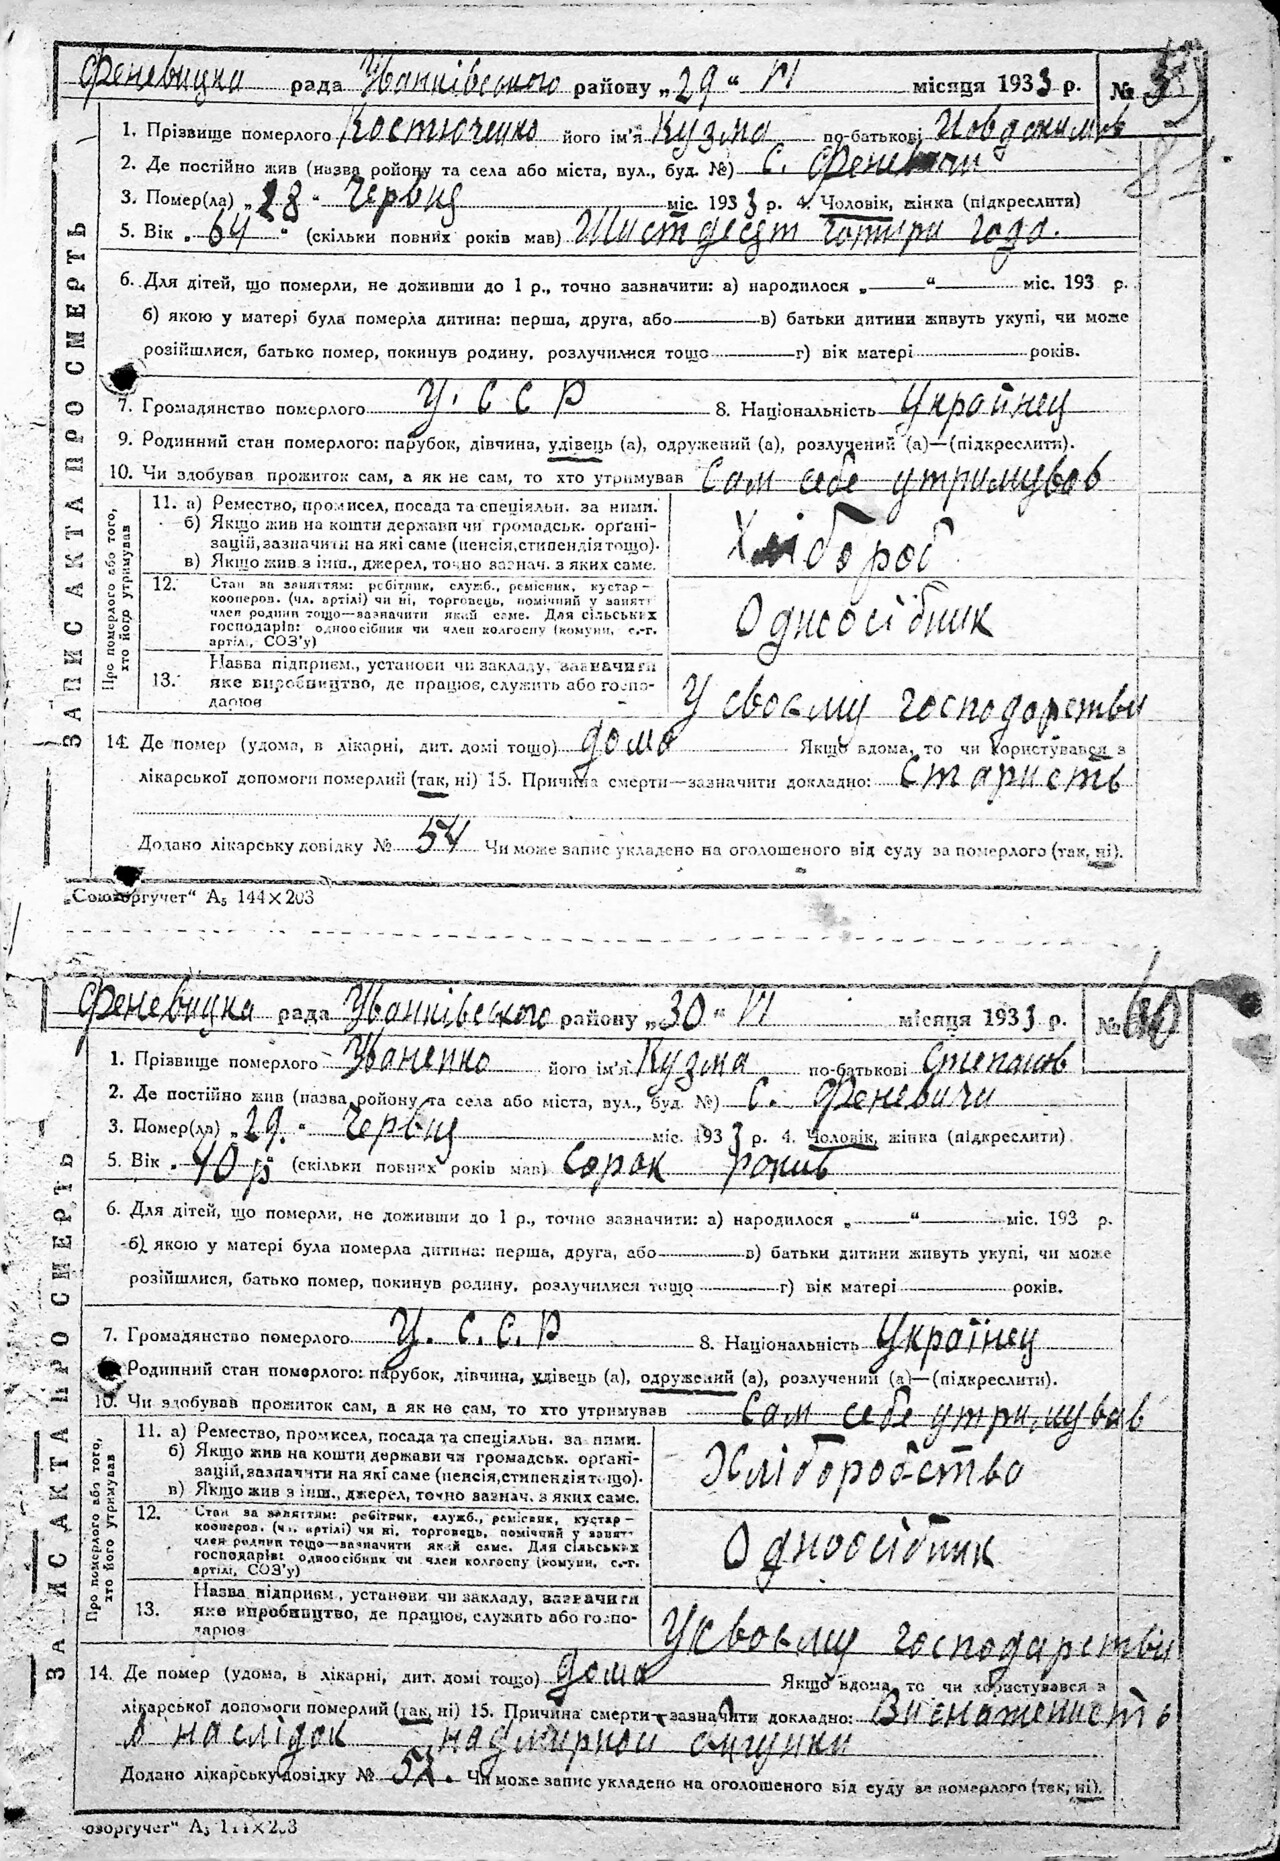 Феневицка рада Іванківського району „29“ VI місяця 1933 р. № 59
81
1. Прізвище померлого Костюченко його ім'я Кузма по-батькові Йовдокимов
2. Де постійно жив (назва району та села або міста, вул., буд. №) С. Феневичи
3. Помер(ла) „28“ Червця міс. 1933 р. 4. Чоловік, жінка (підкреслити)
5. Вік „64“ (скільки повних років мав) Шистдесят чотири года.
6. Для дітей, що померли, не доживши до 1 р., точно зазначити: а) народилося „ “ міс. 193 р.
б) якою у матері була померла дитина: перша, друга, або в) батьки дитини живуть укупі, чи може
розійшлися, батько помер, покинув родину, розлучилися тощо г) вік матері років.
7. Громадянство померлого У. С С Р 8. Національність Украйнец
9. Родинний стан померлого: парубок, дівчина, удівець (а), одружений (а), розлучений (а)—(підкреслити).
10. Чи здобував прожиток сам, а як не сам, то хто утримував Сам себе утримував
ЗАПИС АКТА ПРО СМЕРТЬ
Про померлого або того, хто його утримував
11. а) Ремество, промисел, посада та спеціяльн. за ними.
б) Якщо жив на кошти держави чи громадськ. орґані-
зацій, зазначити на які саме (пенсія, стипендія тощо).
в) Якщо жив з інш., джерел, точно зазнач. з яких саме.
Хлібороб
12. Стан за заняттям: робітник, служб., ремісник, кустар—
кооперов. (чл. артілі) чи ні, торговець, помічний у занятт
член родини тощо—зазначити який саме. Для сільських
господарів: одноосібник чи член колгоспу (комуни, с.-г.
артілі, СОЗ'у)
Одноосібник
13. Назва підприєм., установи чи закладу, зазначити
яке виробництво, де працює, служить або госпо-
дарює
У своєму господарстви
14. Де помер (удома, в лікарні, дит. домі тощо) дома Якщо вдома, то чи користувався з
лікарської допомоги померлий (так, ні) 15. Причина смерти—зазначити докладно: Старисть
Додано лікарську довідку № 54 Чи може запис укладено на оголошеного від суду за померлого (так, ні).
„Союзоргучет“ А₅ 144×203
Феневицка рада Іванківського району „30“ VI місяця 1933 р. № 60
1. Прізвище померлого Іваненко його ім'я Кузма по-батькові Степанов
2. Де постійно жив (назва району та села або міста, вул., буд. №) С. Феневичи
3. Помер(ла) „29.“ Червця міс. 1933 р. 4. Чоловік, жінка (підкреслити)
5. Вік „40 р“ (скільки повних років мав) Сорок рокив
6. Для дітей, що померли, не доживши до 1 р., точно зазначити: а) народилося „ “ міс. 193 р.
б) якою у матері була померла дитина: перша, друга, або в) батьки дитини живуть укупі, чи може
розійшлися, батько помер, покинув родину, розлучилися тощо г) вік матері років.
7. Громадянство померлого У. С. С. Р 8. Національність Українец
Родинний стан померлого: парубок, дівчина, удівець (а), одружений (а), розлучений (а)—(підкреслити).
10. Чи здобував прожиток сам, а як не сам, то хто утримував Сам себе утримував
ЗАПИС АКТА ПРО СМЕРТЬ
Про померлого або того, хто його утримував
11. а) Ремество, промисел, посада та спеціяльн. за ними.
б) Якщо жив на кошти держави чи громадськ. орґані-
зацій, зазначити на які саме (пенсія, стипендія тощо).
в) Якщо жив з інш., джерел, точно зазнач. з яких саме.
Хліборобство
12. Стан за заняттям: робітник, служб., ремісник, кустар—
кооперов. (чл. артілі) чи ні, торговець, помічний у занятт
член родини тощо—зазначити який саме. Для сільських
господарів: одноосібник чи член колгоспу (комуни, с.-г.
артілі, СОЗ'у)
Одноосібник
13. Назва підприєм., установи чи закладу, зазначити
яке виробництво, де працює, служить або госпо-
дарює
У своєму господарстви
14. Де помер (удома, в лікарні, дит. домі тощо) дома Якщо вдома, то чи користувався з
лікарської допомоги померлий (так, ні) 15. Причина смерти—зазначити докладно: Виснаженисть
в наслідок надмирной
Додано лікарську довідку № 52. Чи може запис укладено на оголошеного від суду за померлого (так, ні).
юзоргучет“ А₅ 144×203